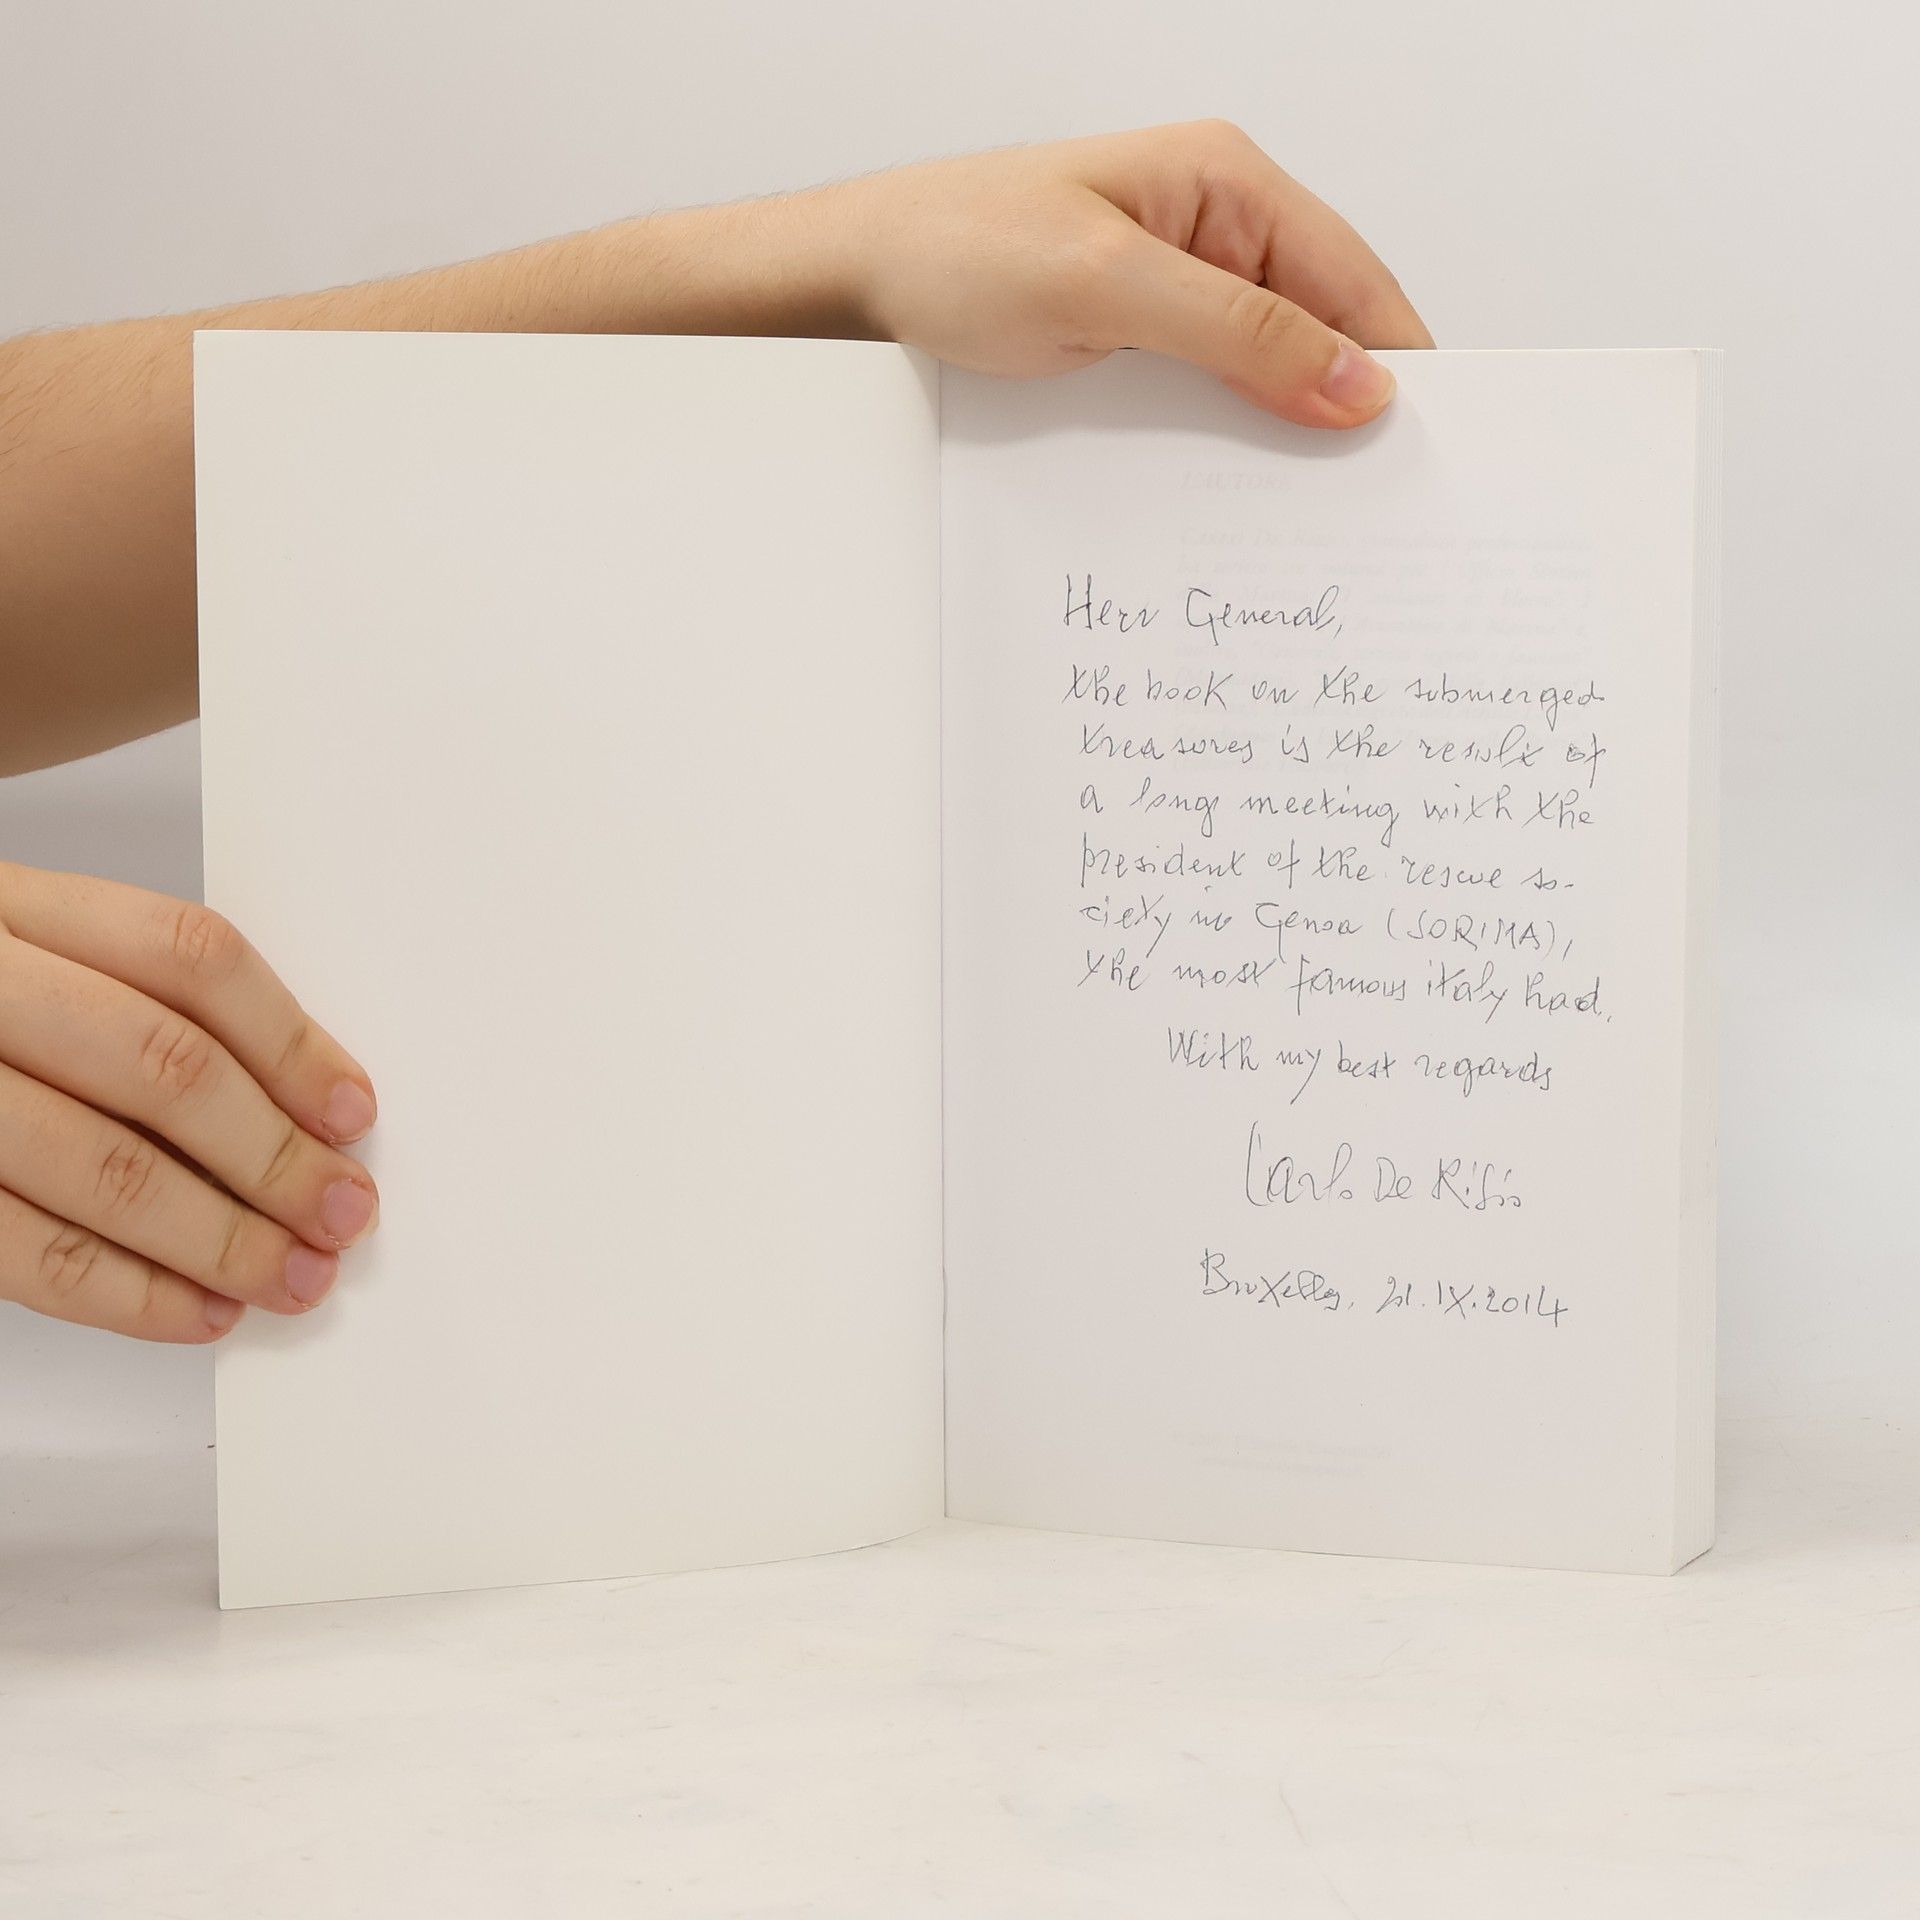 Herr General,
the book on the submerged
treasures is the result of
a long meeting with the
president of the rescue so-
ciety in Genoa (SORIMA),
the most famous italy had.
With my best regards
Carlo De Risio
Bruxelles, 21.IX.2014
L'AUTORE